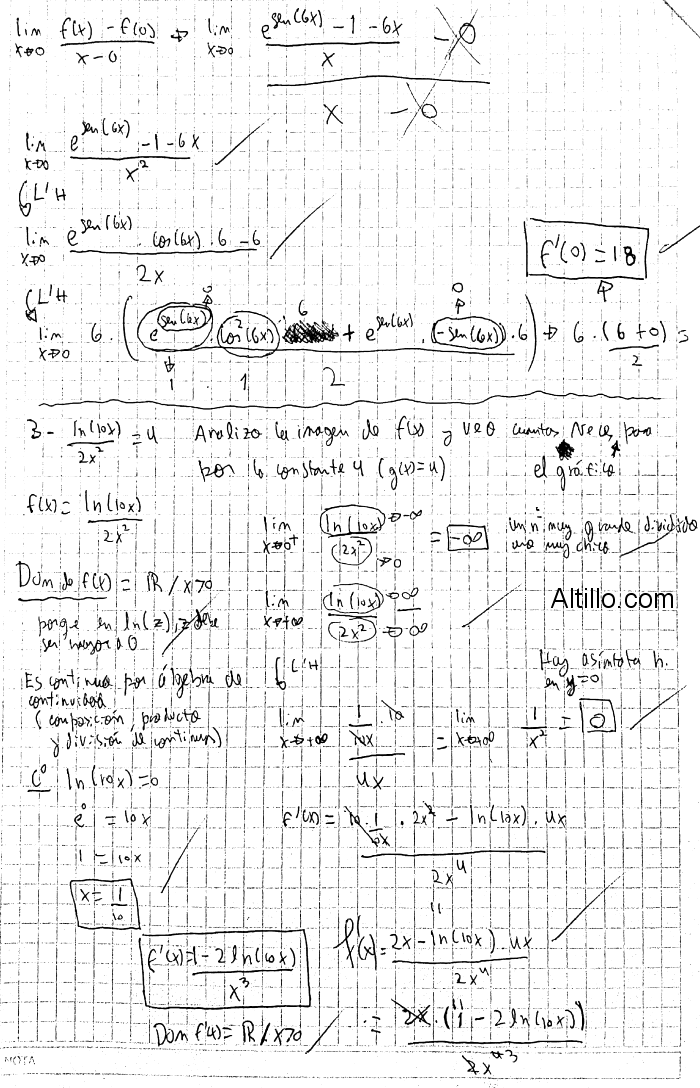 lim x→0 (f(x) - f(0))/(x-0) → lim x→0 ((e^sen(6x) - 1 - 6x)/x - 0)/(x - 0)
lim x→0 (e^sen(6x) - 1 - 6x)/x²
L'H
lim x→0 (e^sen(6x) . cos(6x) . 6 - 6)/2x
f'(0) = 18
L'H
lim x→0 6 . (e^sen(6x) . cos²(6x) . 6 + e^sen(6x) . (-sen(6x)) . 6)/2 → 6 . (6+0)/2 =
0 0
1 1
3- ln(10x)/2x² = 4 Analizo la imagen de f(x) y veo cuantas veces pasa
por la constante 4 (g(x)=4) el gráfico
f(x) = ln(10x)/2x²
lim x→0⁺ ln(10x)/2x² = -∞ un nº muy grande dividido
→-∞ →0 uno muy chico
Dom de f(x) = ℝ / x>0
lim x→+∞ ln(10x)/2x² →∞ →∞
Altillo.com
porqe en ln(z), z debe
ser mayor a 0
L'H
Hay asíntota h.
en y=0
Es continua por álgebra de
continuidad
(composición, producto
y división de continuas)
lim x→+∞ (1/10x . 10)/4x = lim x→+∞ 1/x² = 0
C⁰ ln(10x)=0
e⁰ = 10x
1 = 10x
x = 1/10
f'(x) = (10 . 1/10x . 2x² - ln(10x) . 4x)/2x⁴
f'(x) = (2x - ln(10x) . 4x)/2x⁴
f'(x) = (1 - 2 ln(10x))/x³
= 2x . (1 - 2 ln(10x))/2x⁴ ³
Dom f'(x) = ℝ / x>0
NOTA